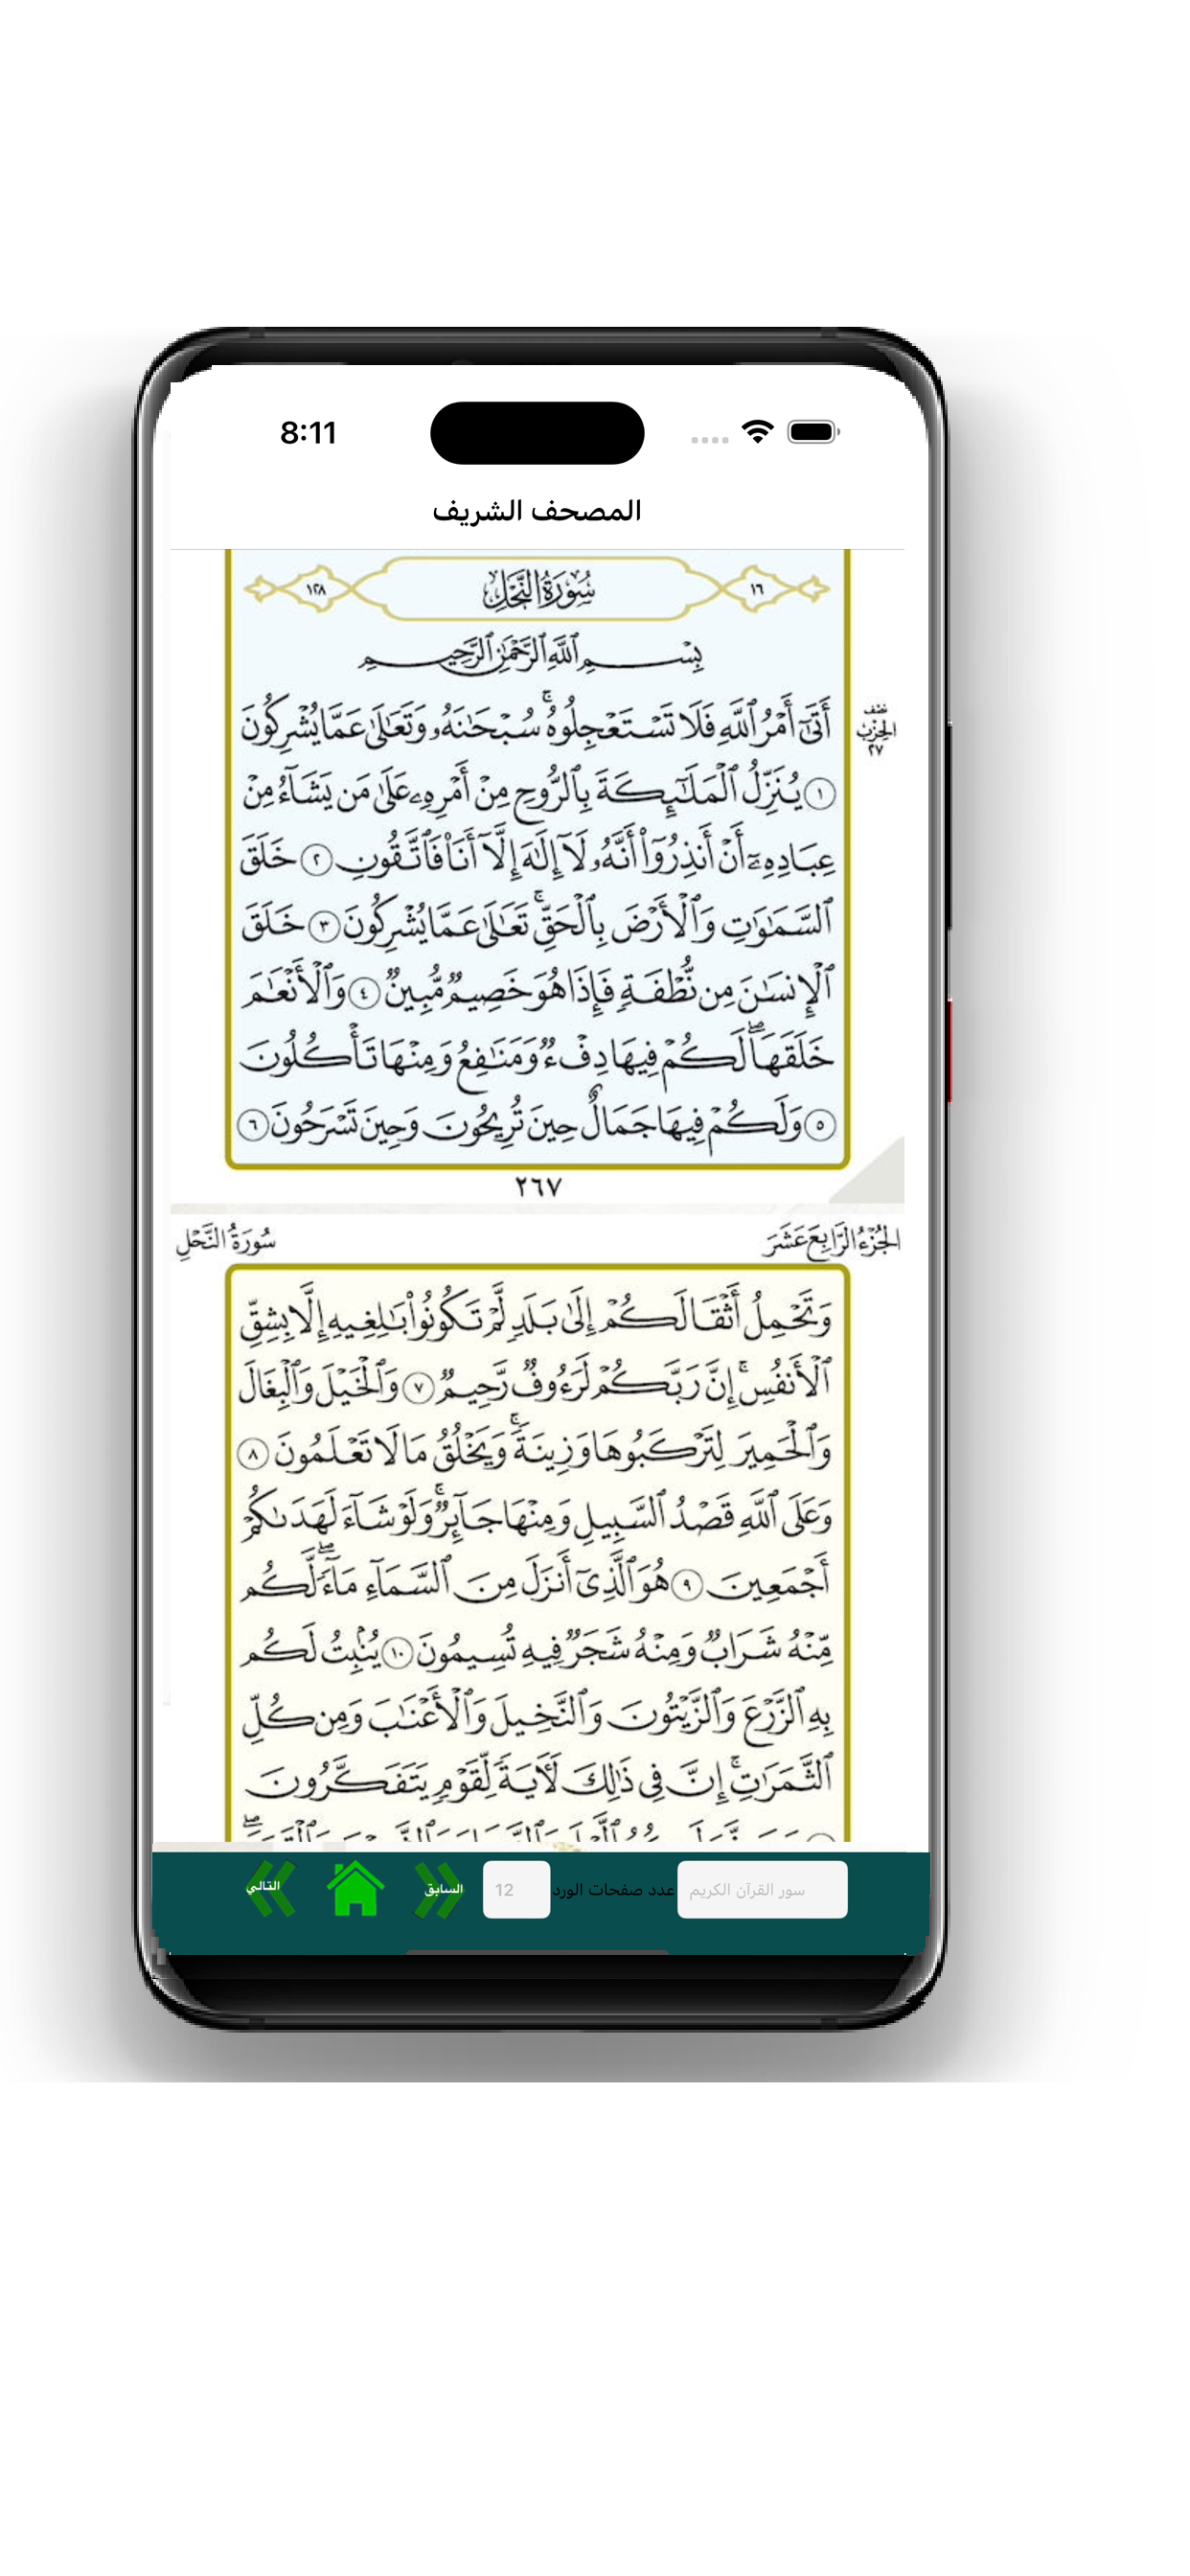 8:11
المصحف الشريف
١٦ سُورَةُ النَّحْلِ ١٢٨
بِسْمِ ٱللَّهِ ٱلرَّحْمَٰنِ ٱلرَّحِيمِ
أَتَىٰٓ أَمْرُ ٱللَّهِ فَلَا تَسْتَعْجِلُوهُۚ سُبْحَٰنَهُۥ وَتَعَٰلَىٰ عَمَّا يُشْرِكُونَ
نصف الحزب ٢٧
١ يُنَزِّلُ ٱلْمَلَٰٓئِكَةَ بِٱلرُّوحِ مِنْ أَمْرِهِۦ عَلَىٰ مَن يَشَآءُ مِنْ
عِبَادِهِۦٓ أَنْ أَنذِرُوٓا۟ أَنَّهُۥ لَآ إِلَٰهَ إِلَّآ أَنَا۠ فَٱتَّقُونِ ٢ خَلَقَ
ٱلسَّمَٰوَٰتِ وَٱلْأَرْضَ بِٱلْحَقِّۚ تَعَٰلَىٰ عَمَّا يُشْرِكُونَ ٣ خَلَقَ
ٱلْإِنسَٰنَ مِن نُّطْفَةٍ فَإِذَا هُوَ خَصِيمٌ مُّبِينٌ ٤ وَٱلْأَنْعَٰمَ
خَلَقَهَاۖ لَكُمْ فِيهَا دِفْءٌ وَمَنَٰفِعُ وَمِنْهَا تَأْكُلُونَ
٥ وَلَكُمْ فِيهَا جَمَالٌ حِينَ تُرِيحُونَ وَحِينَ تَسْرَحُونَ ٦
٢٦٧
الجُزْءُ الرَّابِعَ عَشَرَ سُورَةُ النَّحْلِ
وَتَحْمِلُ أَثْقَالَكُمْ إِلَىٰ بَلَدٍ لَّمْ تَكُونُوا۟ بَٰلِغِيهِ إِلَّا بِشِقِّ
ٱلْأَنفُسِۚ إِنَّ رَبَّكُمْ لَرَءُوفٌ رَّحِيمٌ ٧ وَٱلْخَيْلَ وَٱلْبِغَالَ
وَٱلْحَمِيرَ لِتَرْكَبُوهَا وَزِينَةًۚ وَيَخْلُقُ مَا لَا تَعْلَمُونَ ٨
وَعَلَى ٱللَّهِ قَصْدُ ٱلسَّبِيلِ وَمِنْهَا جَآئِرٌۚ وَلَوْ شَآءَ لَهَدَىٰكُمْ
أَجْمَعِينَ ٩ هُوَ ٱلَّذِىٓ أَنزَلَ مِنَ ٱلسَّمَآءِ مَآءًۖ لَّكُم
مِّنْهُ شَرَابٌ وَمِنْهُ شَجَرٌ فِيهِ تُسِيمُونَ ١٠ يُنۢبِتُ لَكُم
بِهِ ٱلزَّرْعَ وَٱلزَّيْتُونَ وَٱلنَّخِيلَ وَٱلْأَعْنَٰبَ وَمِن كُلِّ
ٱلثَّمَرَٰتِۗ إِنَّ فِى ذَٰلِكَ لَءَايَةً لِّقَوْمٍ يَتَفَكَّرُونَ
سور القرآن الكريم عدد صفحات الورد 12 السابق التالي